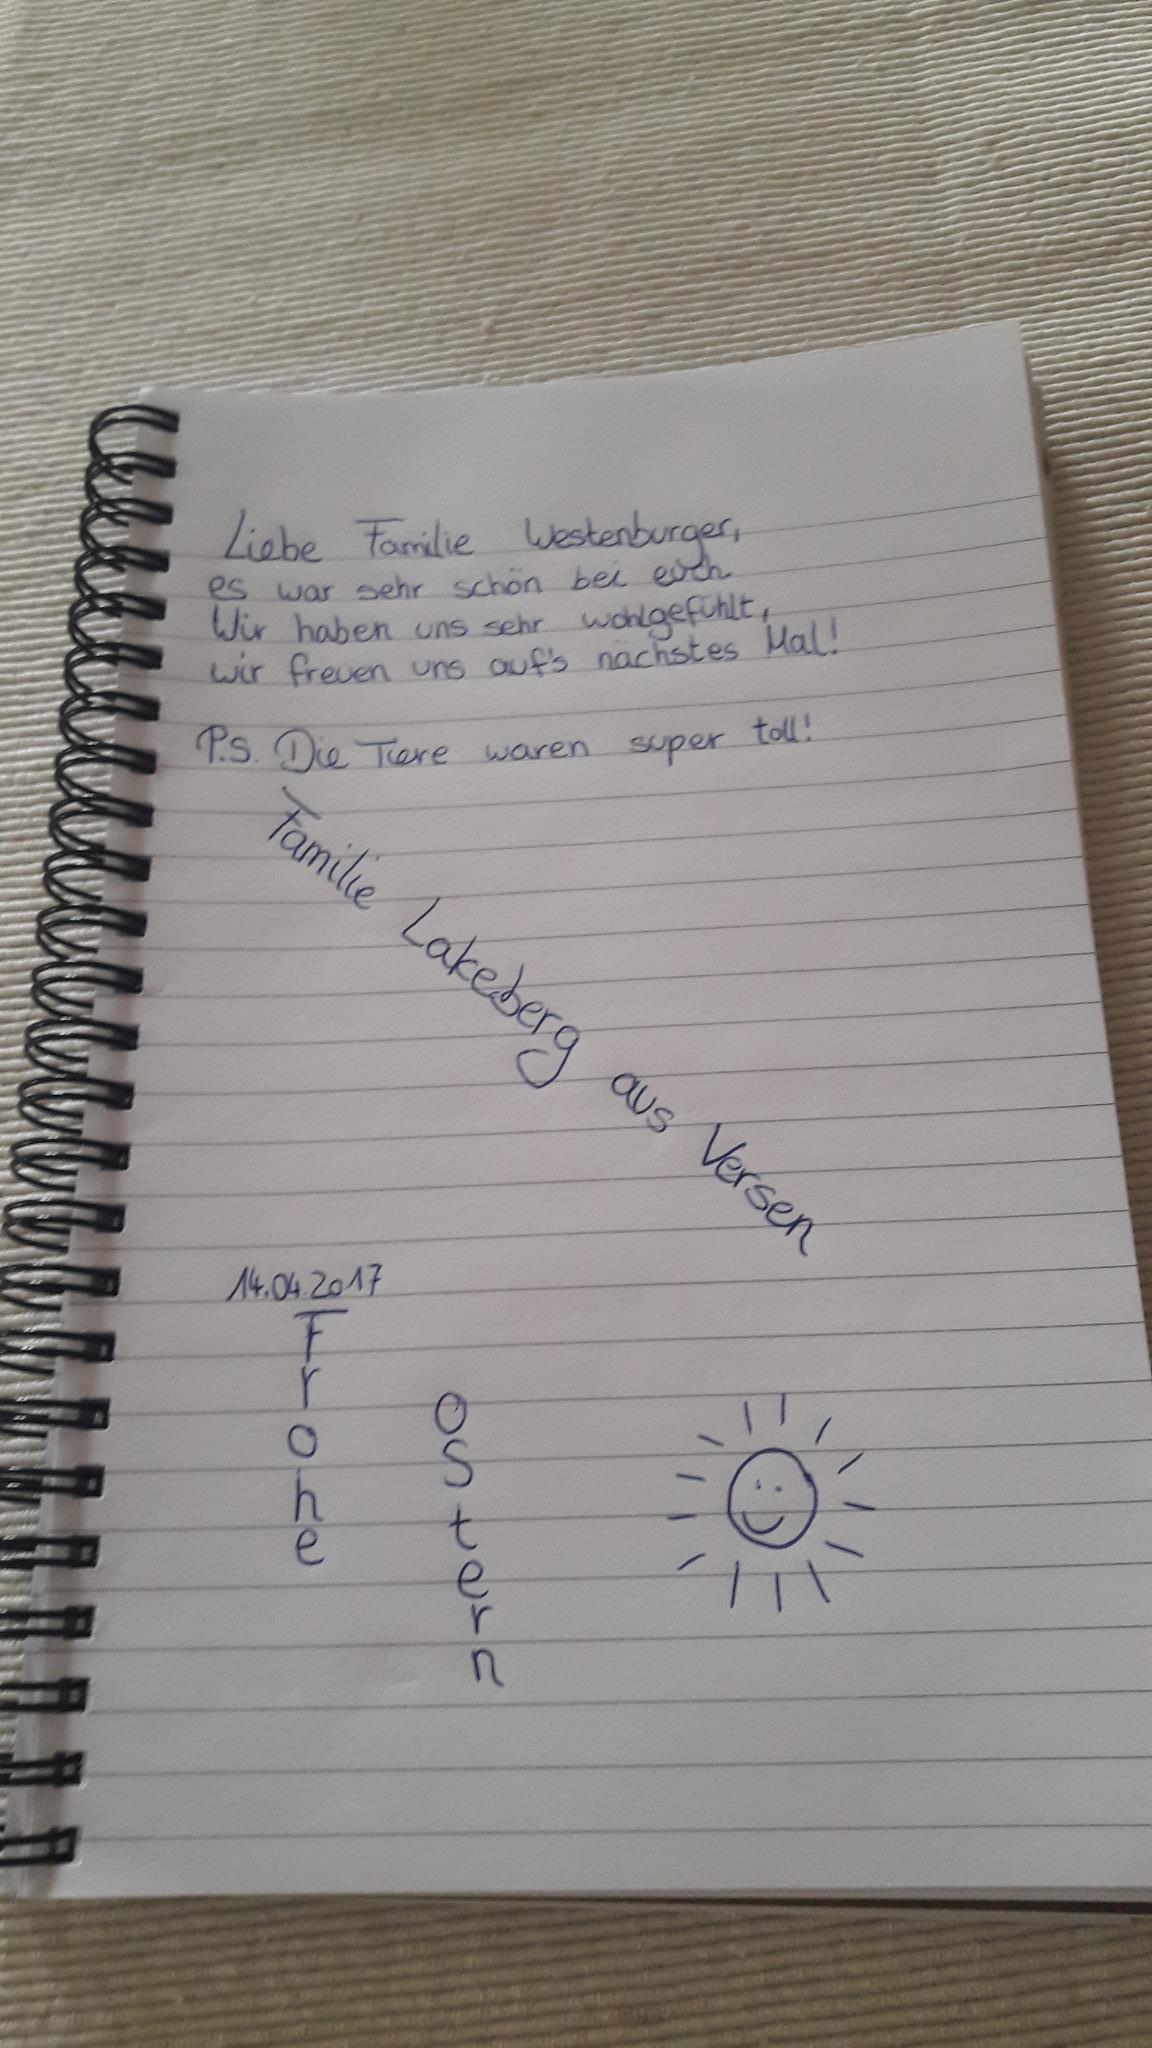 Liebe Familie Westenburger,
es war sehr schön bei euch.
Wir haben uns sehr wohlgefühlt,
wir freuen uns auf's nächstes Mal!
P.S. Die Tiere waren super toll!
Familie Lakeberg aus Versen
14.04.2017
Frohe
Ostern